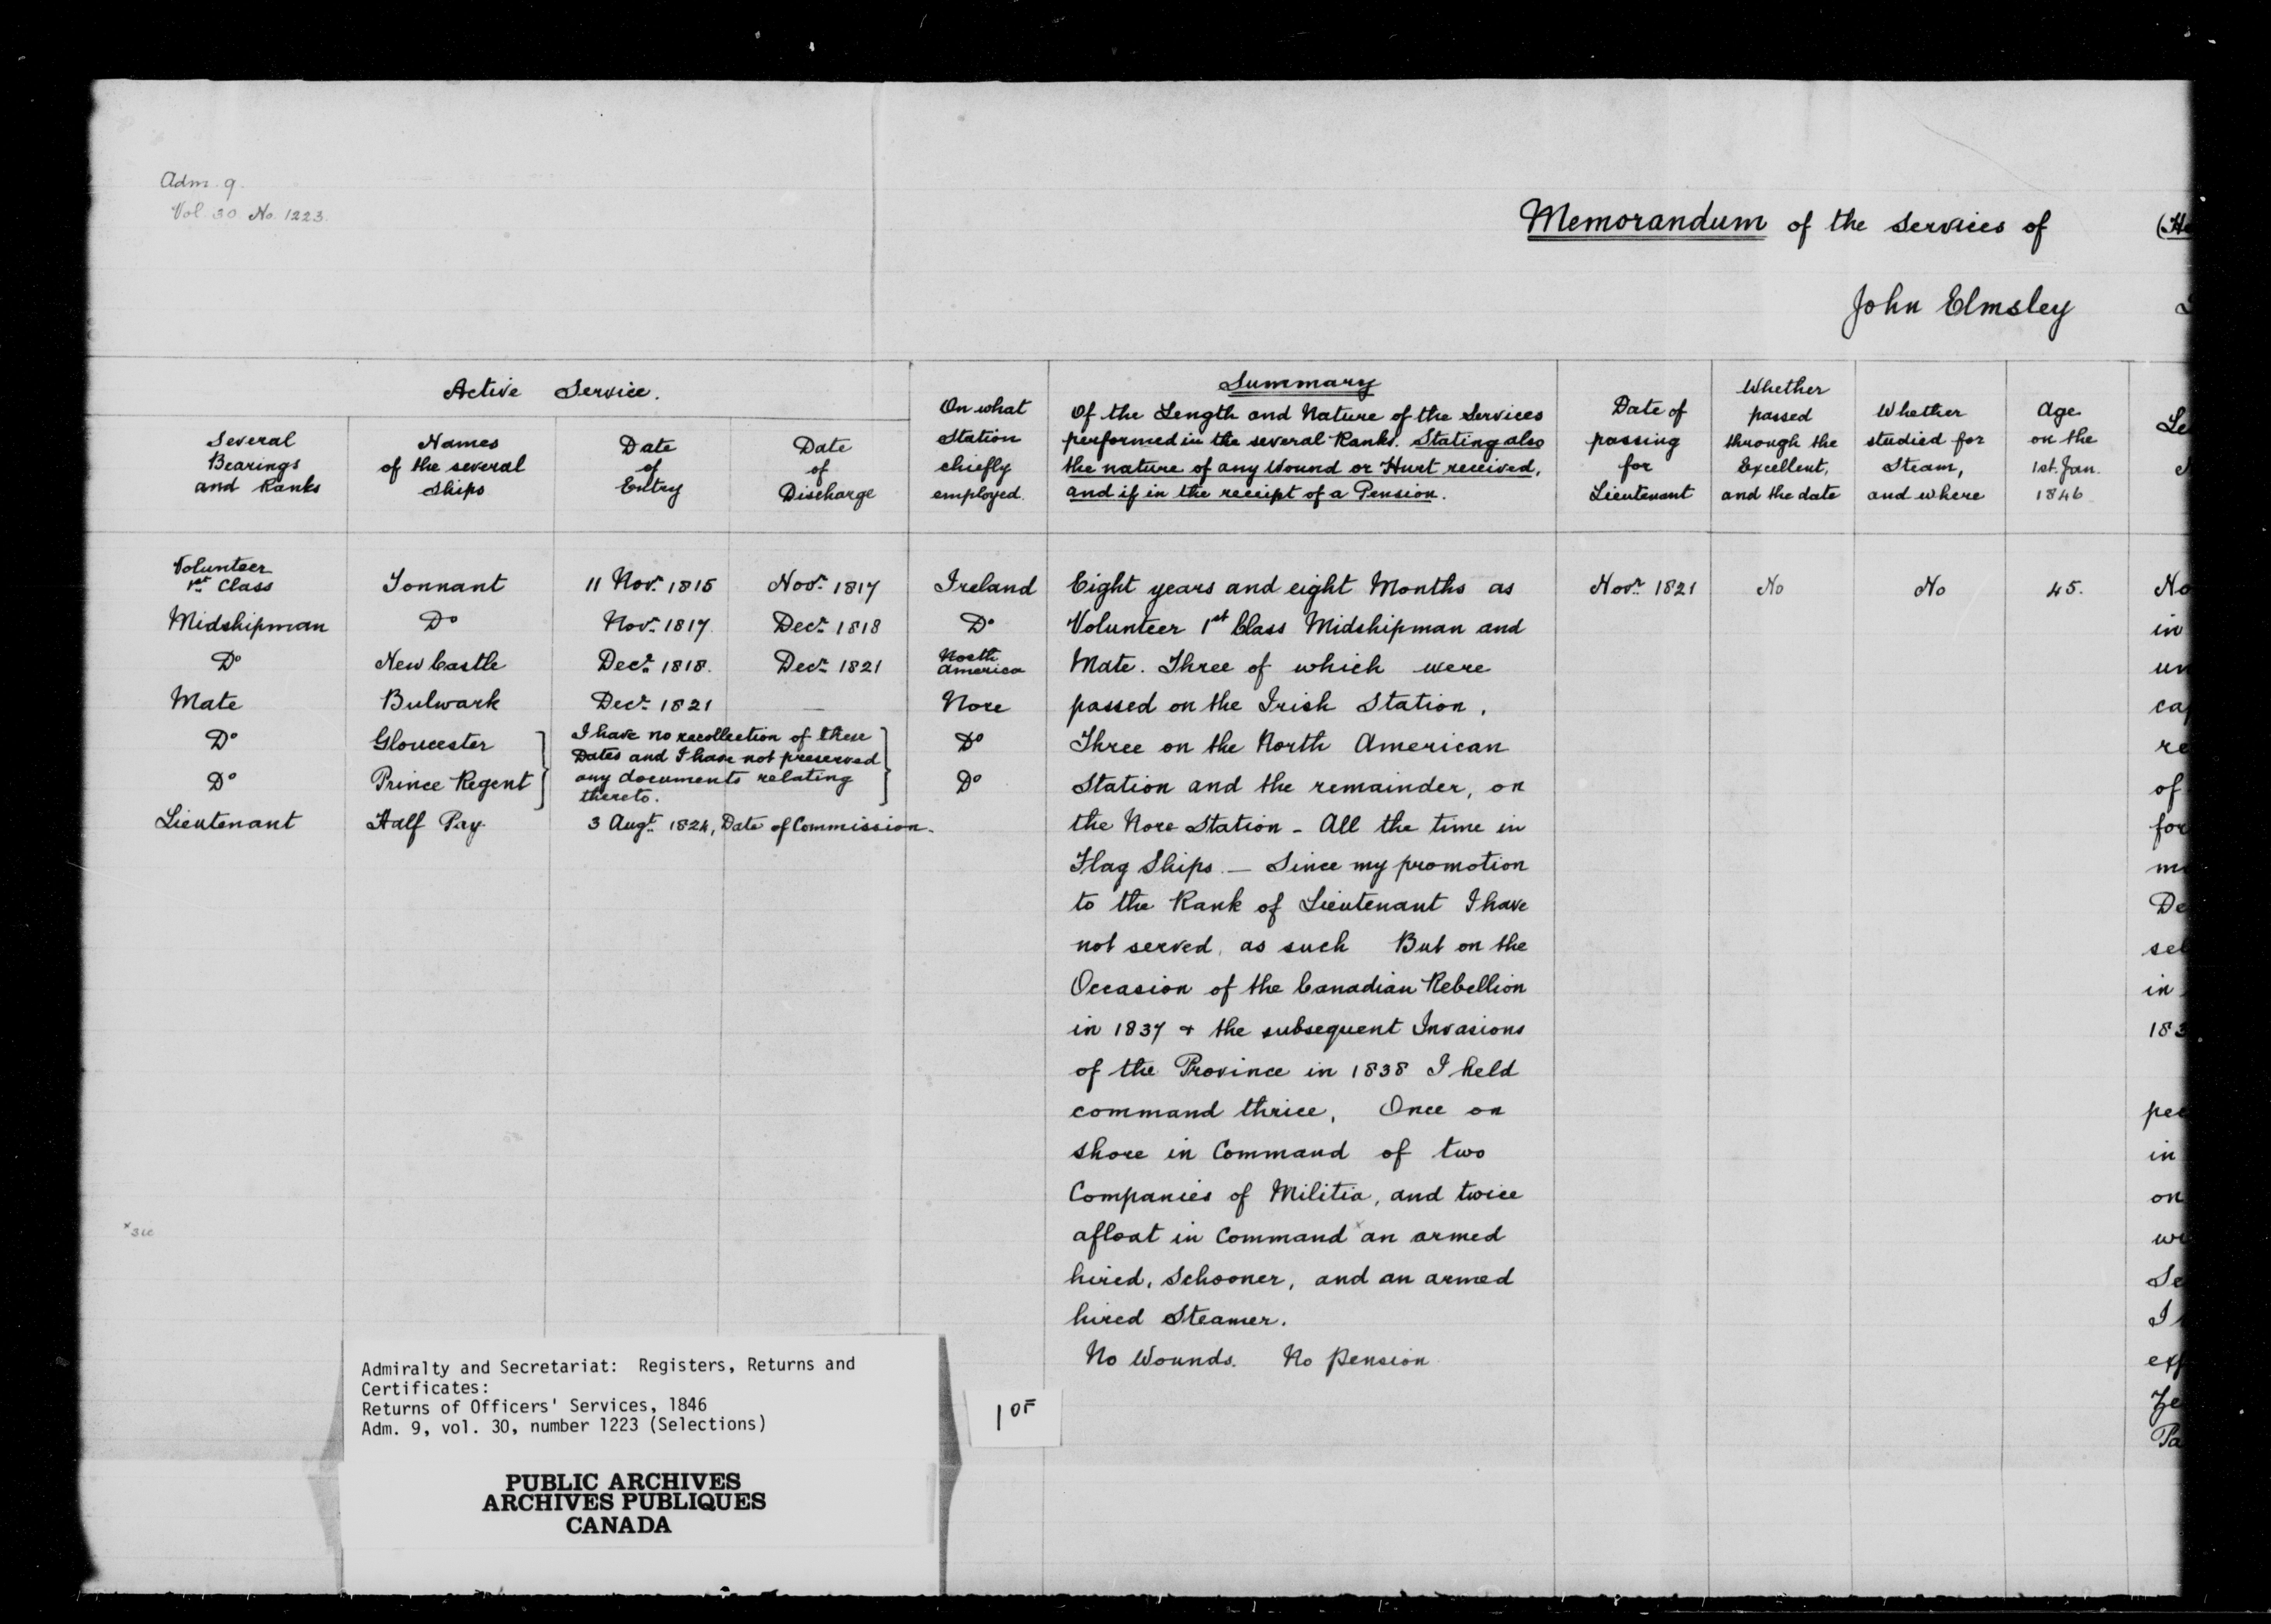 Adm. 9.
Vol 30 No. 1223.
Memorandum of the services of (He
John Elmsley
Active Service.
Several Bearings and Ranks
Names of the several Ships
Date of Entry
Date of Discharge
On what Station chiefly employed.
Summary
Of the Length and Nature of the Services
performed in the several Ranks. Stating also
the nature of any Wound or Hurt received,
and if in the receipt of a Pension.
Date of passing for Lieutenant
Whether passed through the Excellent, and the date
Whether studied for Steam, and where
Age on the 1st. Jan. 1846
Volunteer 1st Class Tonnant 11 Novr. 1815 Novr. 1817 Ireland Eight years and eight Months as Novr. 1821 No No 45. No
Midshipman Do Novr. 1817. Decr. 1818 Do Volunteer 1st Class Midshipman and in
Do New Castle Decr. 1818. Decr. 1821 North America Mate. Three of which were un
Mate Bulwark Decr. 1821 — Nore passed on the Irish Station, ca
Do Gloucester } I have no recollection of these } Do Three on the North American re
Dates and I have not preserved
Do Prince Regent } any documents relating } Do Station and the remainder, on of
thereto.
Lieutenant Half Pay. 3 Augt. 1824, Date of Commission. the Nore Station - All the time in for
Flag Ships. — Since my promotion
to the Rank of Lieutenant I have De
not served, as such But on the sel
Occasion of the Canadian Rebellion in
in 1837 + the subsequent Invasions 183
of the Province in 1838 I held
command thrice, Once on pee
shore in Command of two in
Companies of Militia, and twice on
x sic
afloat in Command x an armed
hired, Schooner, and an armed Se
hired Steamer. I
No Wounds. No Pension
Pa
Admiralty and Secretariat: Registers, Returns and
Certificates:
Returns of Officers' Services, 1846
Adm. 9, vol. 30, number 1223 (Selections)
1 OF
PUBLIC ARCHIVES
ARCHIVES PUBLIQUES
CANADA